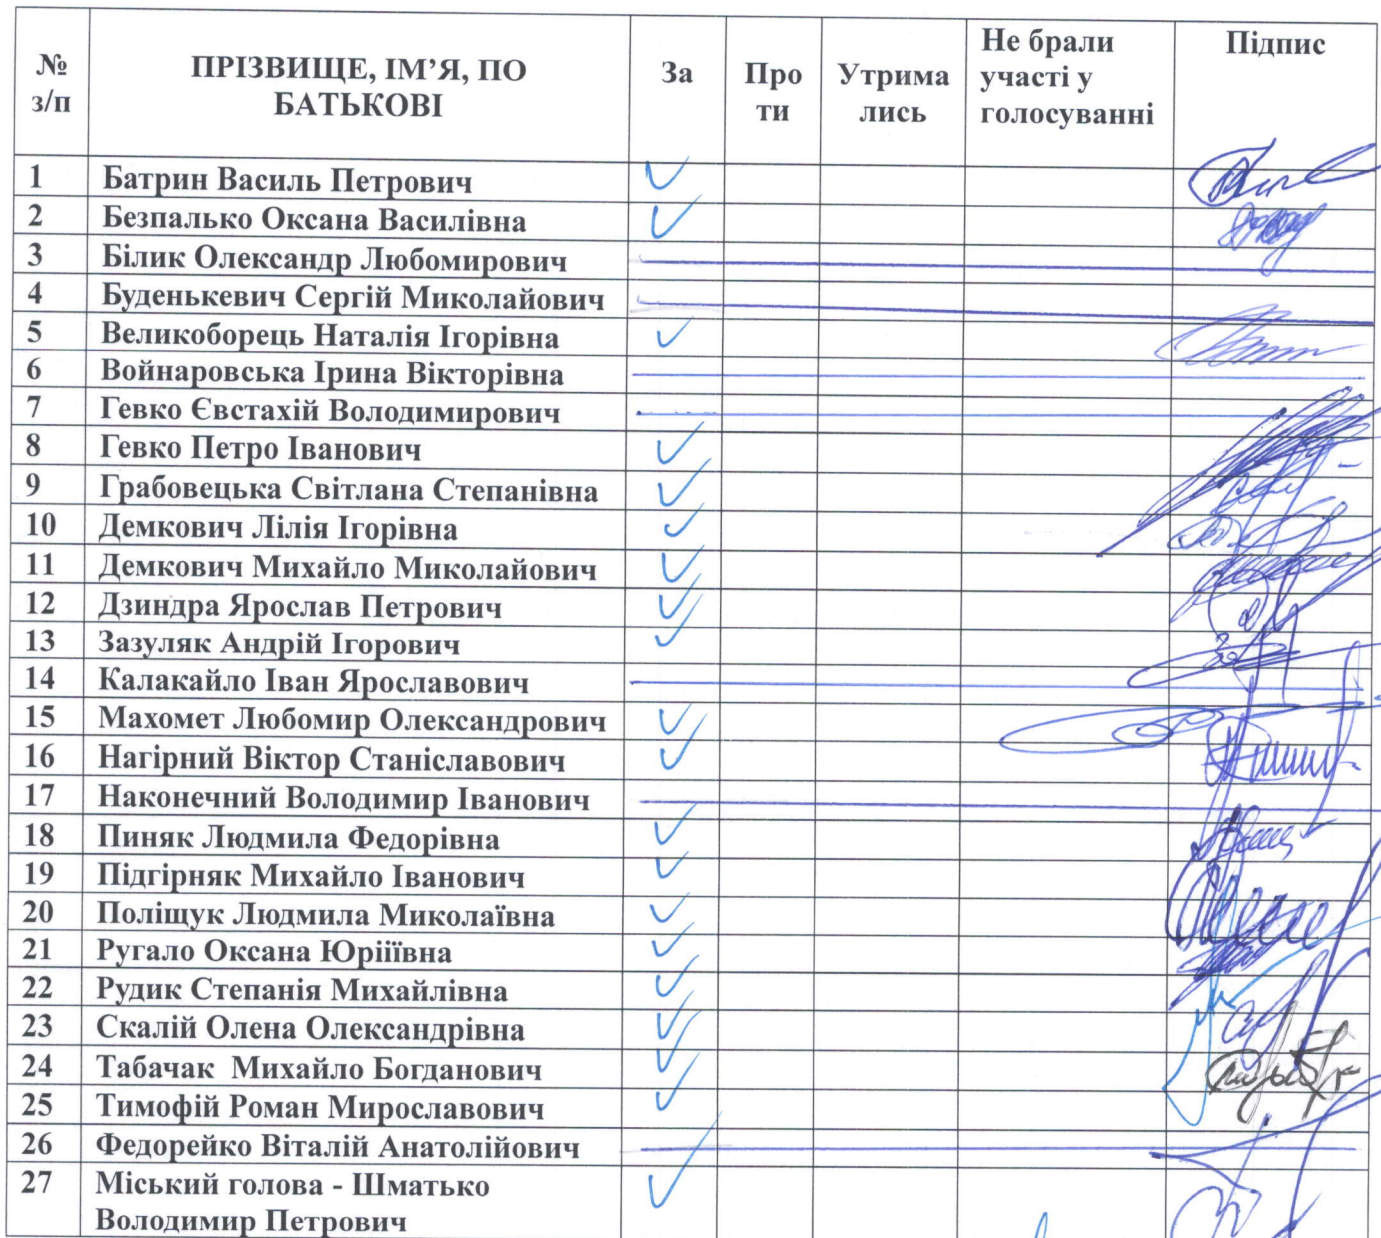 № з/п ПРІЗВИЩЕ, ІМ’Я, ПО БАТЬКОВІ За Про ти Утрима лись Не брали участі у голосуванні Підпис
1 Батрин Василь Петрович ✓
2 Безпалько Оксана Василівна ✓
3 Білик Олександр Любомирович
4 Буденькевич Сергій Миколайович
5 Великоборець Наталія Ігорівна ✓
6 Войнаровська Ірина Вікторівна
7 Гевко Євстахій Володимирович
8 Гевко Петро Іванович ✓
9 Грабовецька Світлана Степанівна ✓
10 Демкович Лілія Ігорівна ✓
11 Демкович Михайло Миколайович ✓
12 Дзиндра Ярослав Петрович ✓
13 Зазуляк Андрій Ігорович ✓
14 Калакайло Іван Ярославович
15 Махомет Любомир Олександрович ✓
16 Нагірний Віктор Станіславович ✓
17 Наконечний Володимир Іванович
18 Пиняк Людмила Федорівна ✓
19 Підгірняк Михайло Іванович ✓
20 Поліщук Людмила Миколаївна ✓
21 Ругало Оксана Юріїївна ✓
22 Рудик Степанія Михайлівна ✓
23 Скалій Олена Олександрівна ✓
24 Табачак Михайло Богданович ✓
25 Тимофій Роман Мирославович ✓
26 Федорейко Віталій Анатолійович
27 Міський голова - Шматько ✓
Володимир Петрович